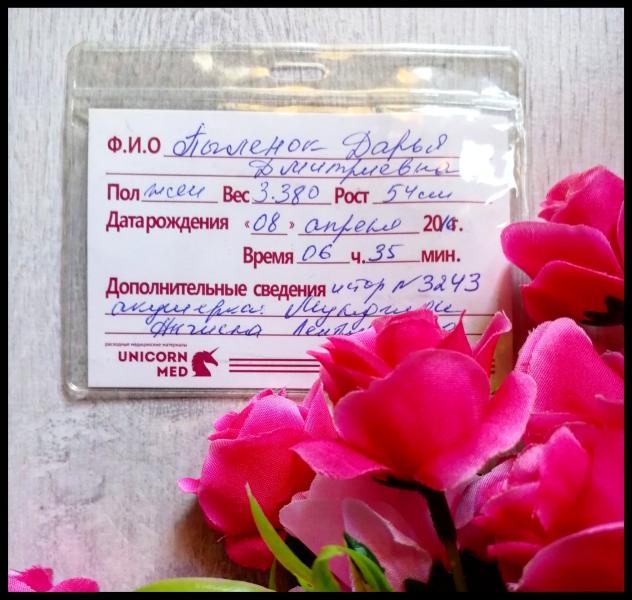 Ф.И.О Пыленок Дарья
Дмитриевна
Пол жен Вес 3.380 Рост 54см
Дата рождения «08» апреля 2016г.
Время 06 ч. 35 мин.
Дополнительные сведения истор N3243
акушерка:
расходные медицинские материалы
UNICORN
MED